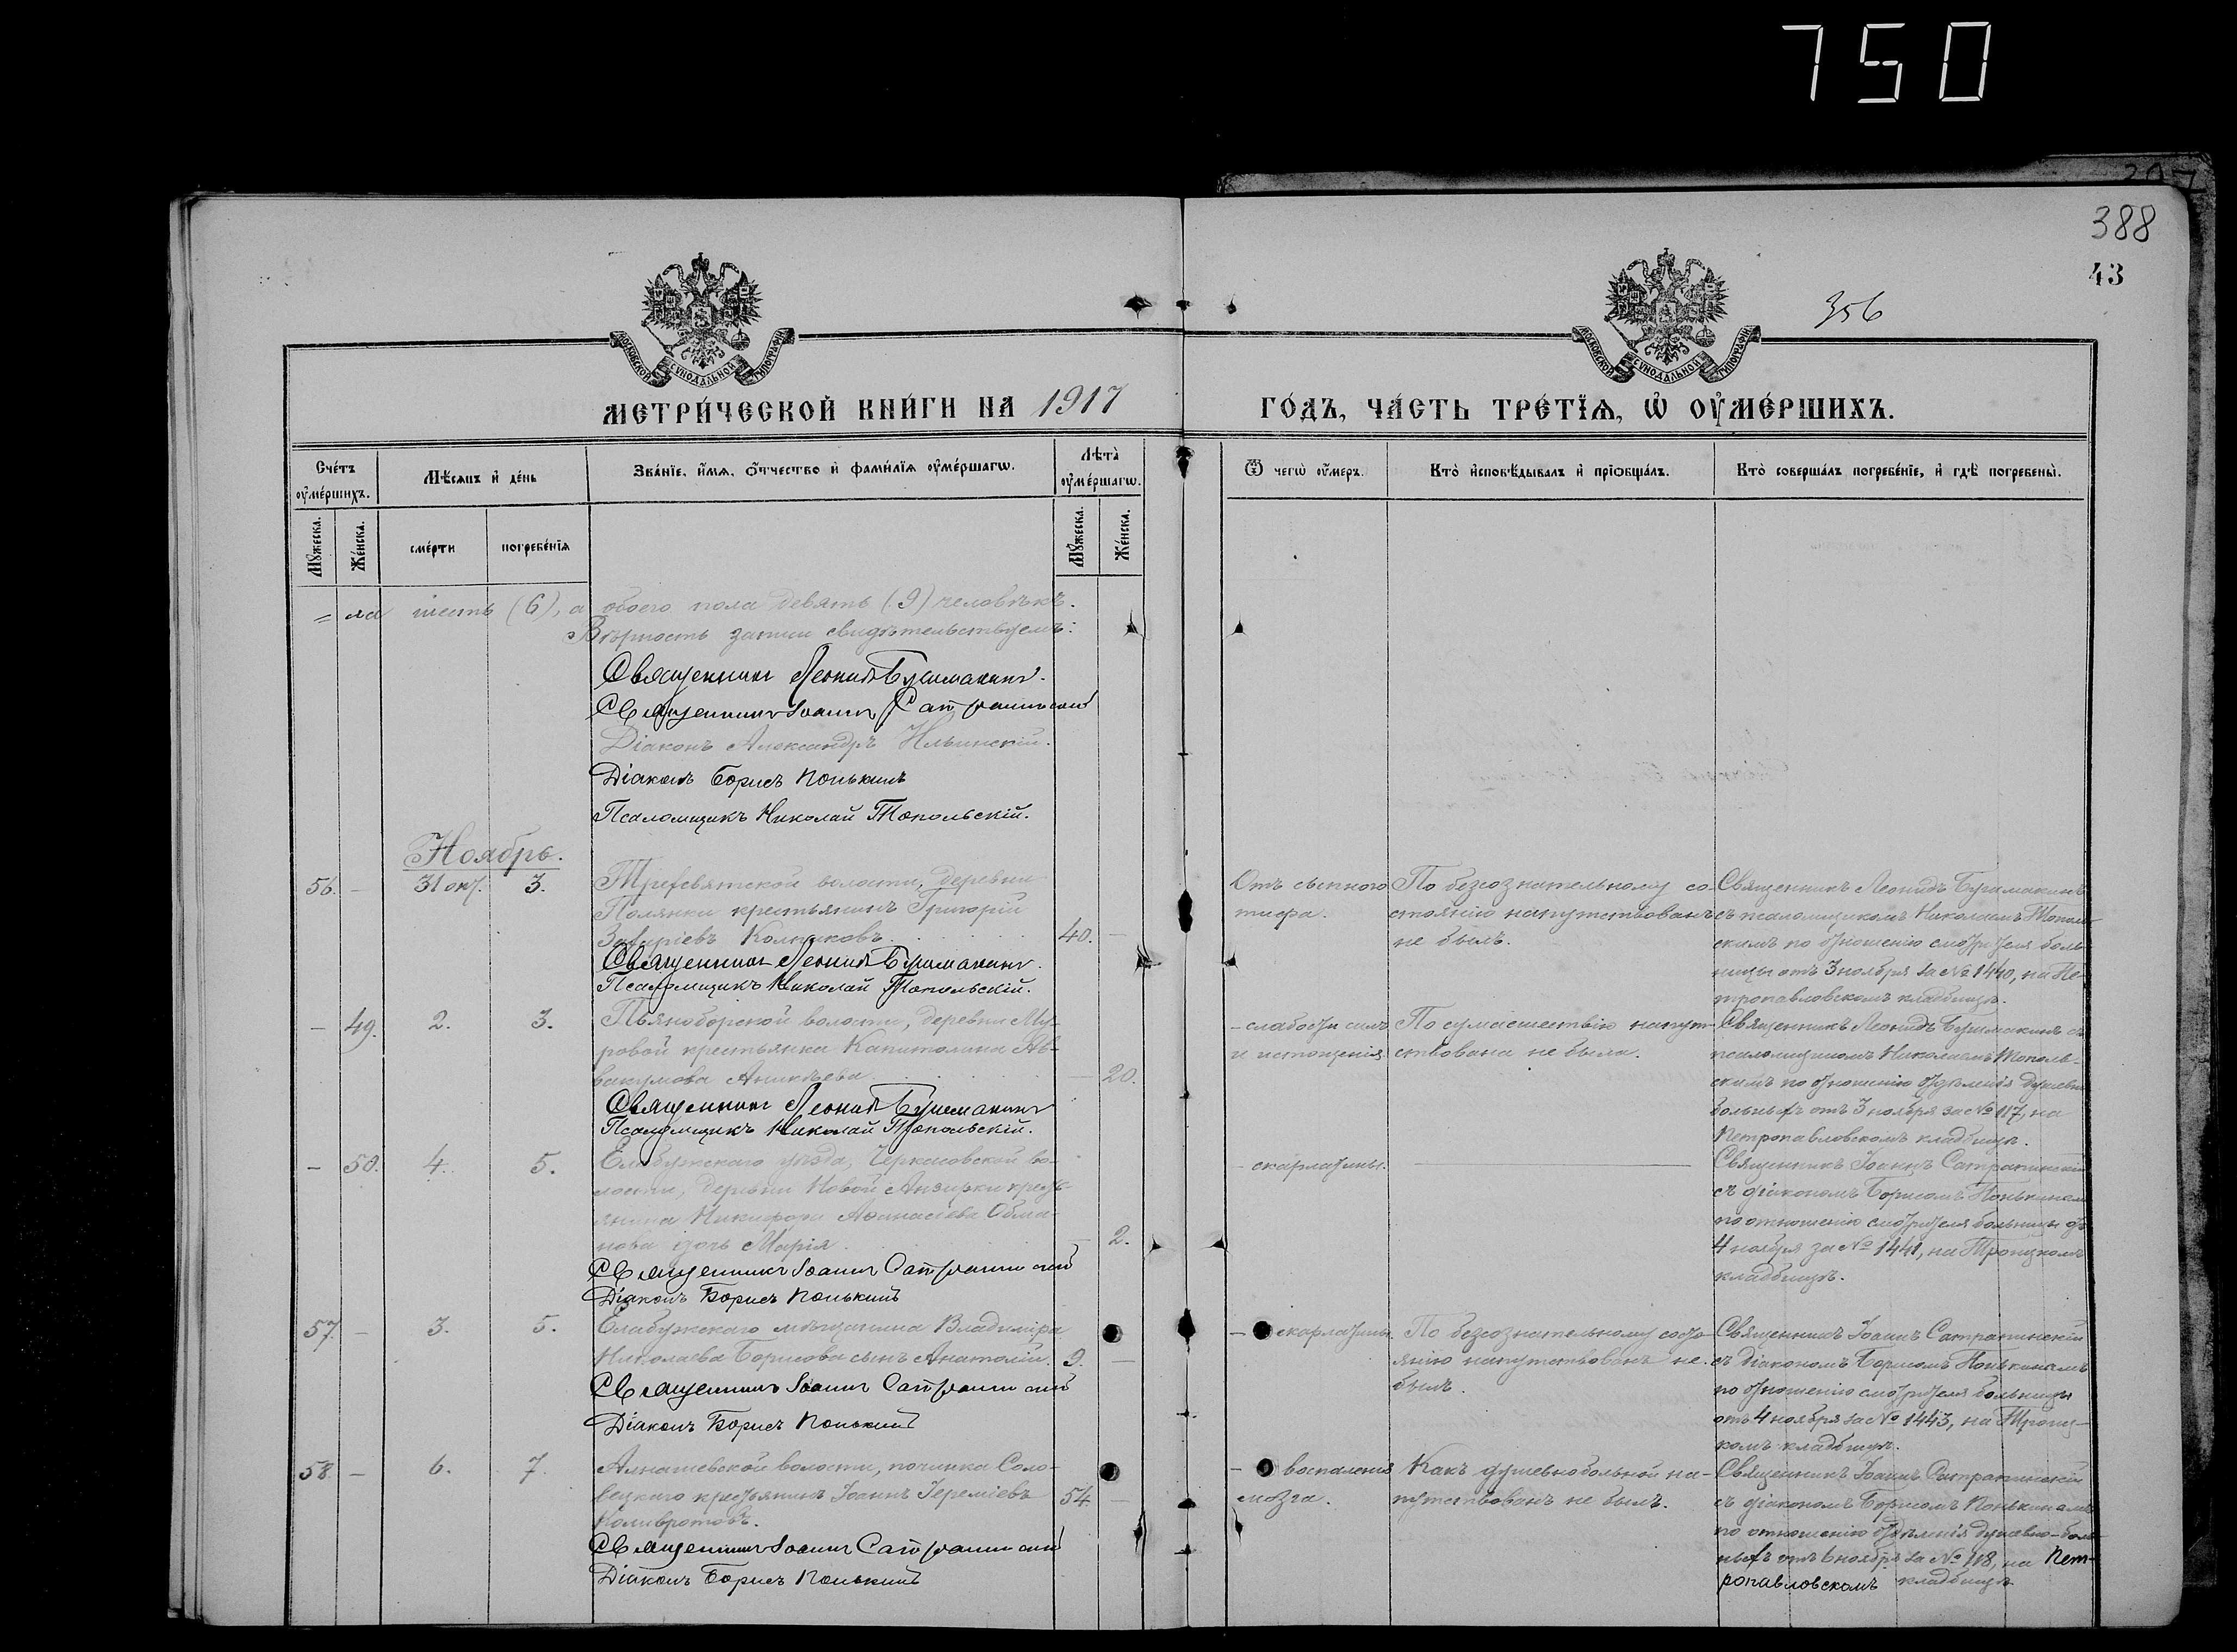 750
388
43
356
МОСКОВСКОЙ СѴНОДАЛЬНОЙ ТИПОГРАФІИ
МОСКОВСКОЙ СѴНОДАЛЬНОЙ ТИПОГРАФІИ
МЕТРИ́ЧЕСКОЙ КНИ́ГИ НА 1917
ГО́ДЪ, ЧА́СТЬ ТРЕ́ТЇѦ, Ѡ҆ ОУ҆МЕ́РШИХЪ.
Сче́тъ оу҆ме́ршихъ.
Мѣ́сяцъ и҆ де́нь
Зва́нїе, и҆́мѧ, ѻ҆́тчество и҆ фами́лїѧ оу҆ме́ршагѡ.
Лѣ́та оу҆ме́ршагѡ.
Ѿ чегѡ̀ оу҆́меръ.
Кто̀ и҆сповѣ́дывалъ и҆ прїѡбща́лъ.
Кто̀ соверша́лъ погребе́нїе, и҆ гдѣ̀ погребены̀.
Мꙋ́жеска.
Же́нска.
сме́рти
погребе́нїѧ
Мꙋ́жеска.
Же́нска.
= ла шесть (6), а обоего пола девять (9) человѣкъ.
Вѣрность записи свидѣтельствуемъ:
Священникъ Леонидъ Бушмакинъ.
Священникъ Іоаннъ Сатрапинскій
Діаконъ Александръ Ильинскій.
Діаконъ Борисъ Понькинъ
Псаломщикъ Николай Топольскій.
Ноябрь.
56. - 31 окт. 3. Трехсвятской волости, деревни
Полянки крестьянинъ Григорій
Захаріевъ Колпаковъ. 40. -
Священникъ Леонидъ Бушмакинъ.
Псаломщикъ Николай Топольскій.
Отъ сыпного
тифа.
По безсознательному со-
стоянію напутствованъ
не былъ.
Священникъ Леонидъ Бушмакинъ
съ псаломщикомъ Николаемъ Тополь-
скимъ по отношенію смотрителя боль-
ницы отъ 3 ноября за № 1440, на Пе-
тропавловскомъ кладбищѣ.
- 49. 2. 3. Пьяноборской волости, деревни Му-
ровой крестьянка Капитолина Ав-
вакумова Аникѣева - 20.
Священникъ Леонидъ Бушмакинъ
Псаломщикъ Николай Топольскій.
- слабости силъ
и истощенія.
По сумасшествію напут-
ствована не была.
Священникъ Леонидъ Бушмакинъ съ
псаломщикомъ Николаемъ Тополь-
скимъ по отношенію отдѣленія душевно
больныхъ отъ 3 ноября за № 117, на
Петропавловскомъ кладбищѣ.
- 50. 4. 5. Елабужскаго уѣзда, Черкасовской во-
лости, деревни Новой Анзирки кресть-
янина Никифора Аѳанасіева Обма-
нова дочь Марія. - 2.
Священникъ Іоаннъ Сатрапинскій
Діаконъ Борисъ Понькинъ
- скарлатины.
Священникъ Іоаннъ Сатрапинскій
съ діакономъ Борисомъ Понькинымъ
по отношенію смотрителя больницы отъ
4 ноября за № 1441, на Троицкомъ
кладбищѣ.
57. - 3. 5. Елабужскаго мѣщанина Владиміра
Николаева Борисова сынъ Анатолій. 9. -
Священникъ Іоаннъ Сатрапинскій
Діаконъ Борисъ Понькинъ
- скарлатины.
По безсознательному состо-
янію напутствованъ не
былъ.
Священникъ Іоаннъ Сатрапинскій
съ діакономъ Борисомъ Понькинымъ
по отношенію смотрителя больницы
отъ 4 ноября за № 1443, на Троиц-
комъ кладбищѣ.
58. - 6. 7. Алнашевской волости, починка Соло-
вецкаго крестьянинъ Іоаннъ Іереміевъ 54. -
Священникъ Іоаннъ Сатрапинскій
Діаконъ Борисъ Понькинъ
- воспаленія
мозга.
Какъ душевнобольной на-
путствованъ не былъ.
Священникъ Іоаннъ Сатрапинскій
съ діакономъ Борисомъ Понькинымъ
по отношенію отдѣленія душевно-боль-
ныхъ отъ 6 ноября за № 118, на Пет-
ропавловскомъ кладбищѣ